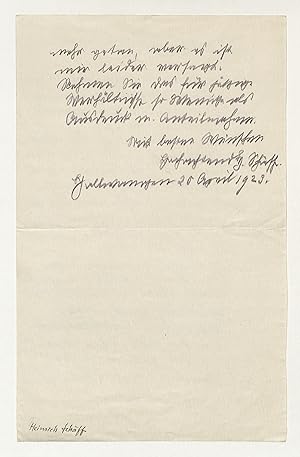 mehr getan, aber es ist
mir leider versagt.
Nehmen Sie das für jetzige
Verhältnisse so Wenige als
Ausdruck m. Anteilnahme.
Mit besten Wünschen
Hochachtend H. Schäff.
20 April 1923.
Heinrich Schäff.